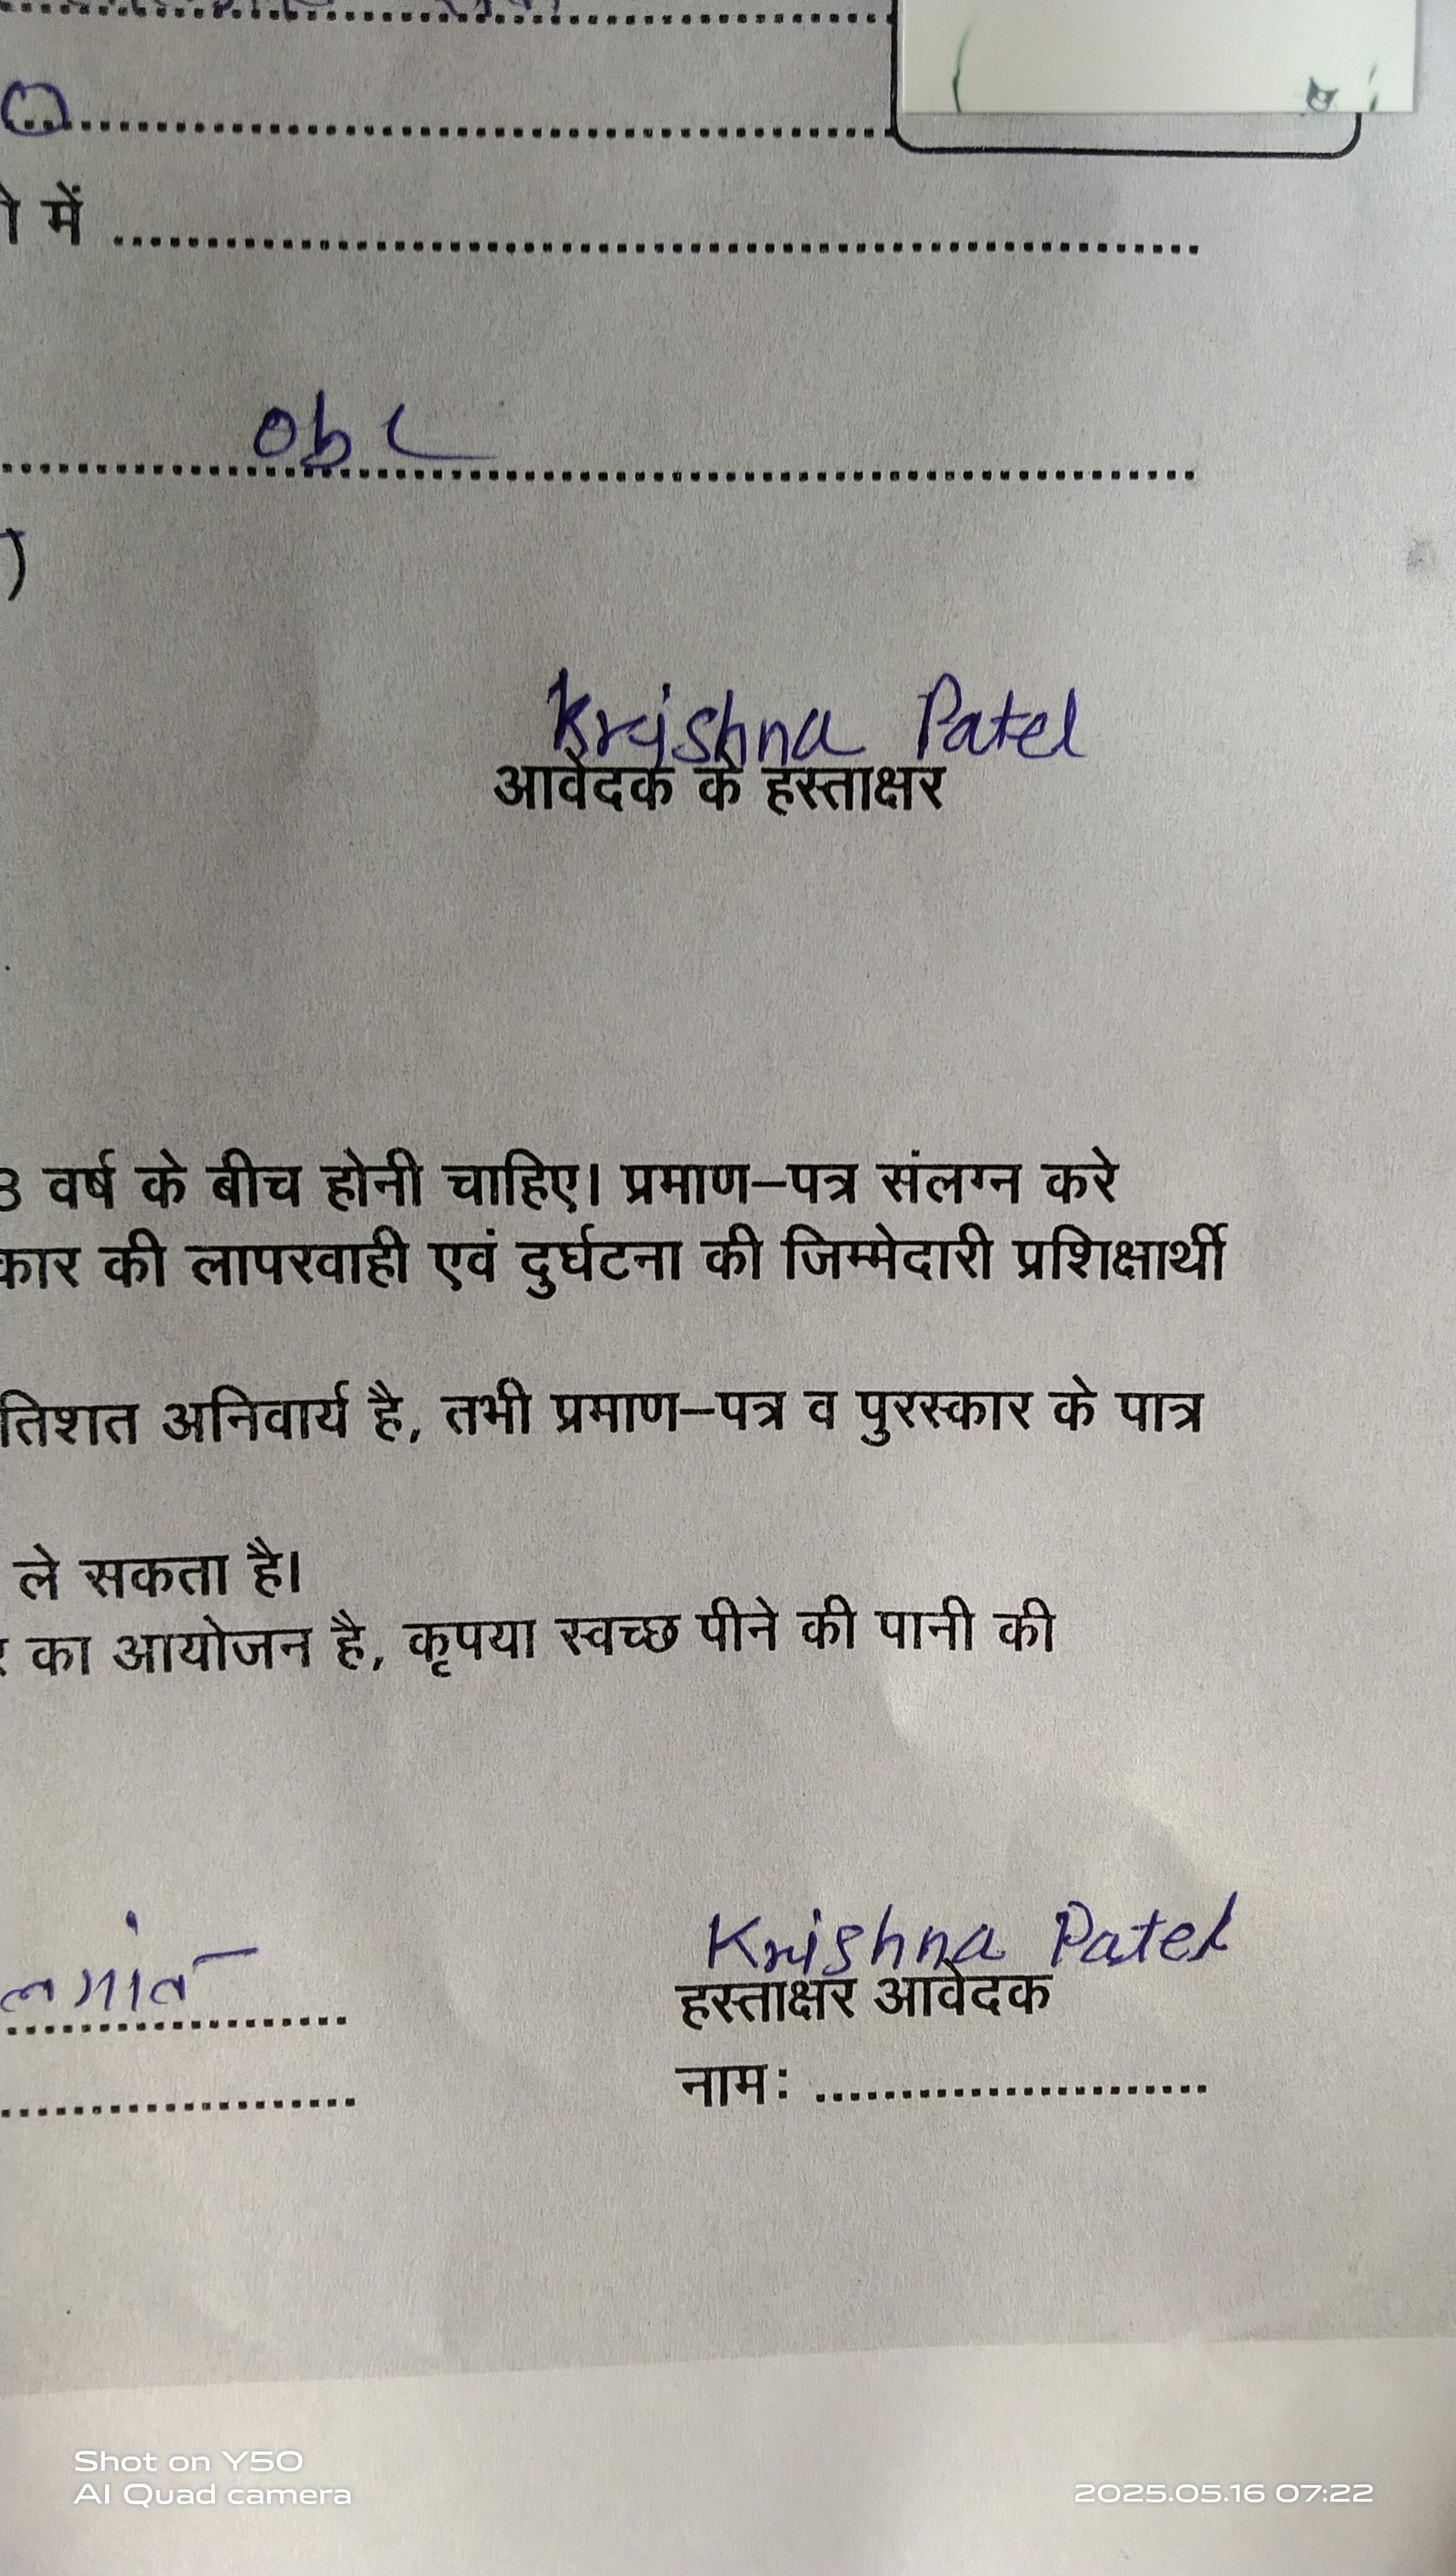 ो में
obc
)
Krishna Patel
आवेदक के हस्ताक्षर
वर्ष के बीच होनी चाहिए। प्रमाण–पत्र संलग्न करे
कार की लापरवाही एवं दुर्घटना की जिम्मेदारी प्रशिक्षार्थी
तिशत अनिवार्य है, तभी प्रमाण–पत्र व पुरस्कार के पात्र
ले सकता है।
का आयोजन है, कृपया स्वच्छ पीने की पानी की
Krishna Patel
हस्ताक्षर आवेदक
नाम:
Shot on Y50
AI Quad camera
2025.05.16 07:22